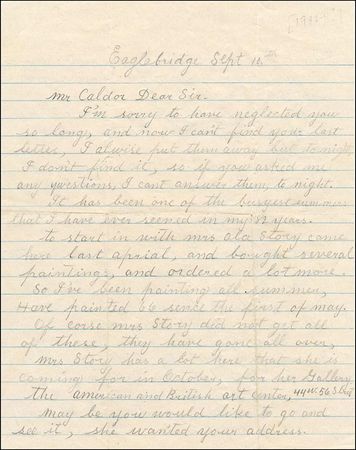 Eaglebridge Sept 11th
Mr Caldor Dear Sir.
I'm sorry to have neglected you
so long, and now I can't find your last
letter, I alwise put them away but to night
I dont find it, so if you asked me
any questions, I cant answer them to night.
It has been one of the busyest summers
that I have ever seened in my years.
to start in with mrs ota Story came
here Last aprial, and bought several
paintings, and ordered a lot more.
So I've been painting all summer,
Have painted 66 sence the first of may.
Of corse mrs Story did not get all
of these, they have gone all over,
mrs Story has a Lot here that she is
coming for in October, for her Gallery
the american and British art center, 44 w. 56 St
may be you would like to go and
see it, she wanted your address.